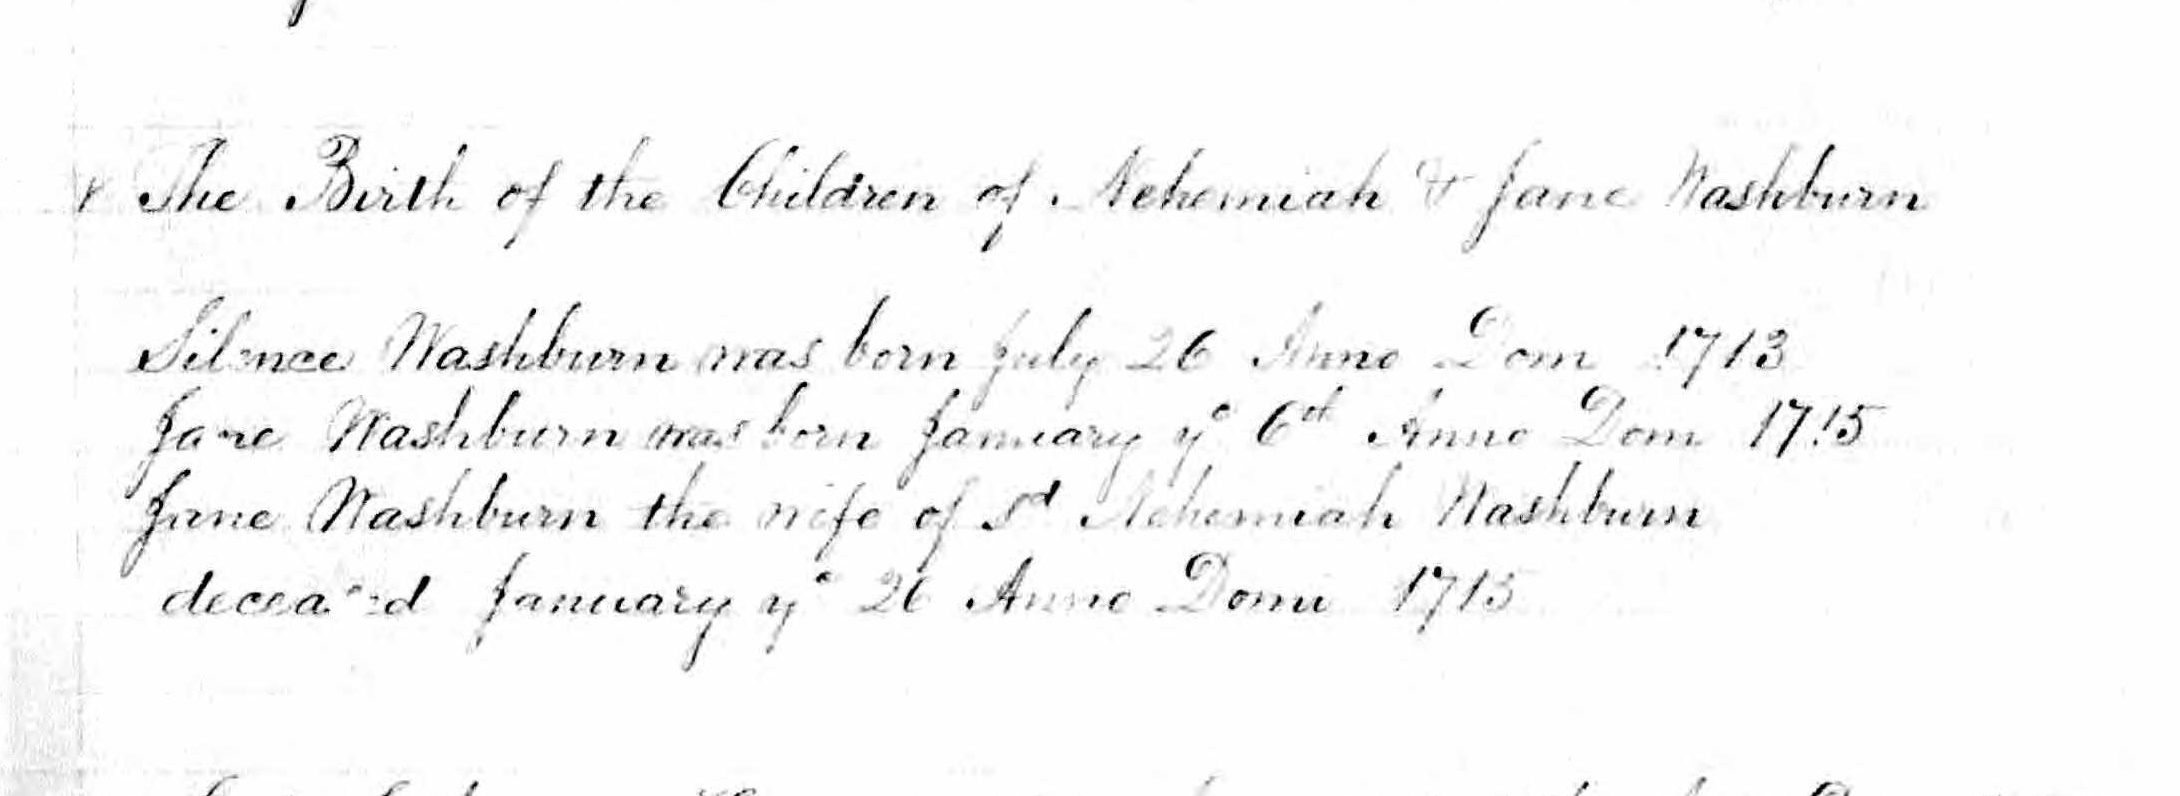 The Birth of the Children of Nehemiah & Jane Washburn
Silence Washburn was born July 26 Anno Dom 1713
Jane Washburn was born January yᵉ 6th Anno Dom 1715
Jane Washburn the wife of Sᵈ Nehemiah Washburn
deceased January yᵉ 26 Anno Domi 1715